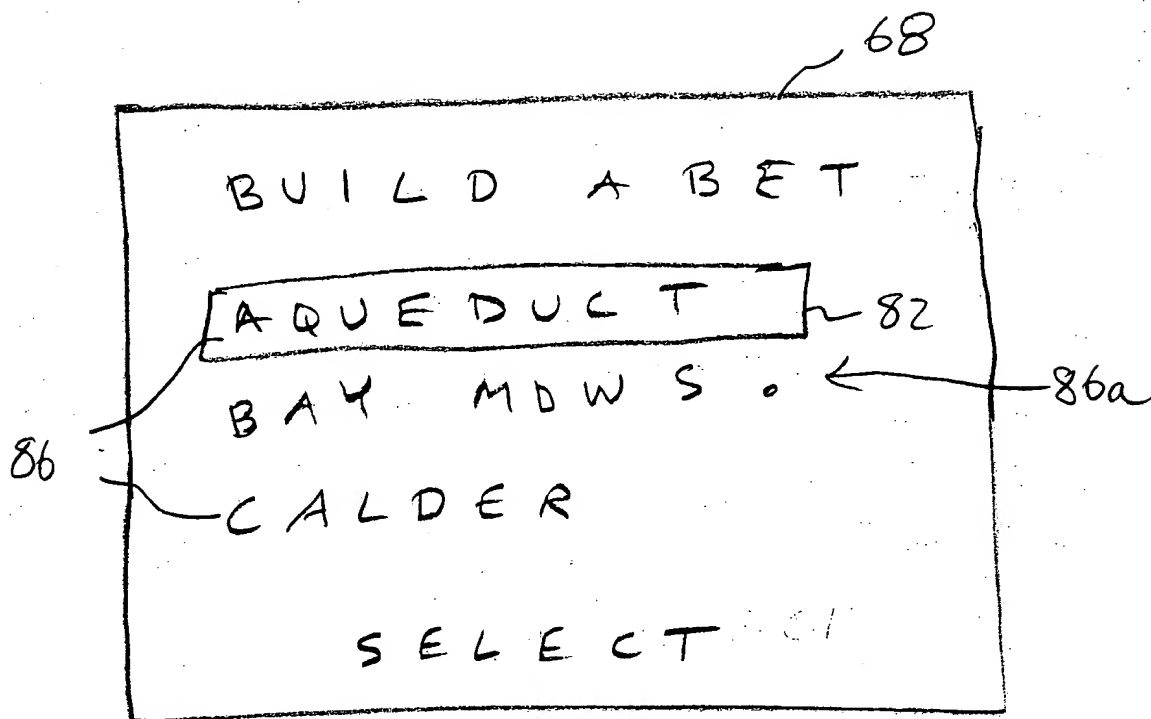 68
BUILD A BET
AQUEDUCT
82
BAY MDWS.
86a
86
CALDER
SELECT